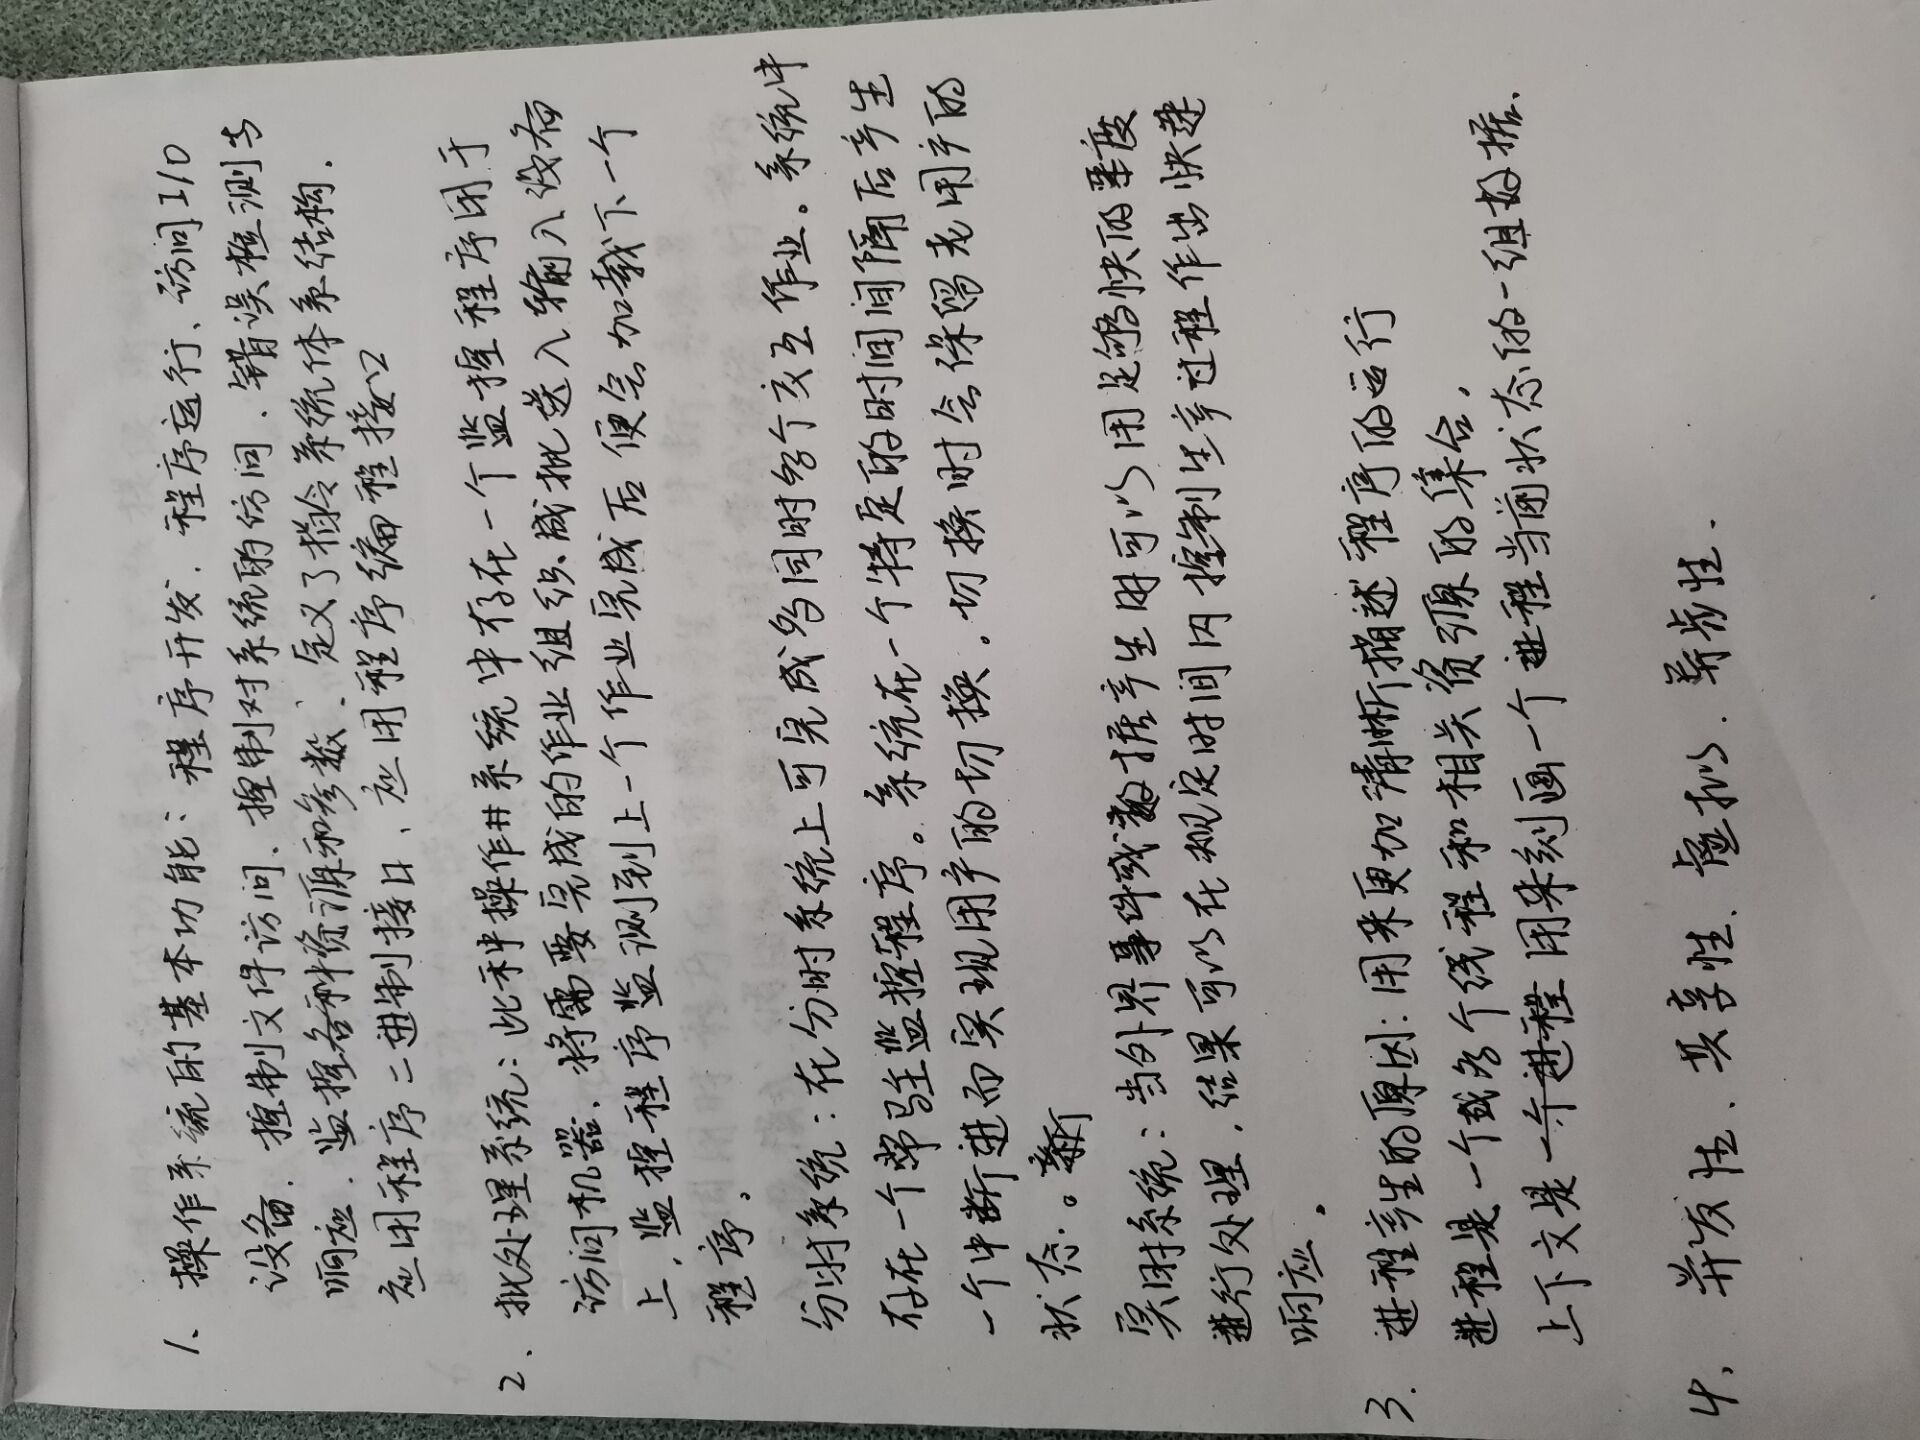 1、操作系统的基本功能：程序开发、程序运行、访问I/O
设备、控制文件访问、控制对系统的访问、错误检测与
响应、监控各种资源和参数、定义了指令系统体系结构、
应用程序二进制接口、应用程序编程接口
2、批处理系统：此种操作系统中存在一个监控程序用于
访问机器，将需要完成的作业组织成批送入输入设备
上，监控程序监测到上一个作业完成后便会加载下一个
程序。
分时系统：在分时系统上可完成多同时多个交互作业。系统中
存在一个常驻监控程序。系统在一个特定的时间间隔后产生
一个中断进而实现用户的切换。切换时会保留老用户的
状态。新
实时系统：当外界事件或数据产生时可以用足够快的速度
进行处理，结果可以在规定时间内控制生产过程作出快速
响应。
3、进程产生的原因：用来更加清晰描述程序的运行
进程是一个或多个线程和相关资源的集合，
上下文是一个进程用来刻画一个进程当前状态的一组数据、
4、并发性、共享性、虚拟、异步性．